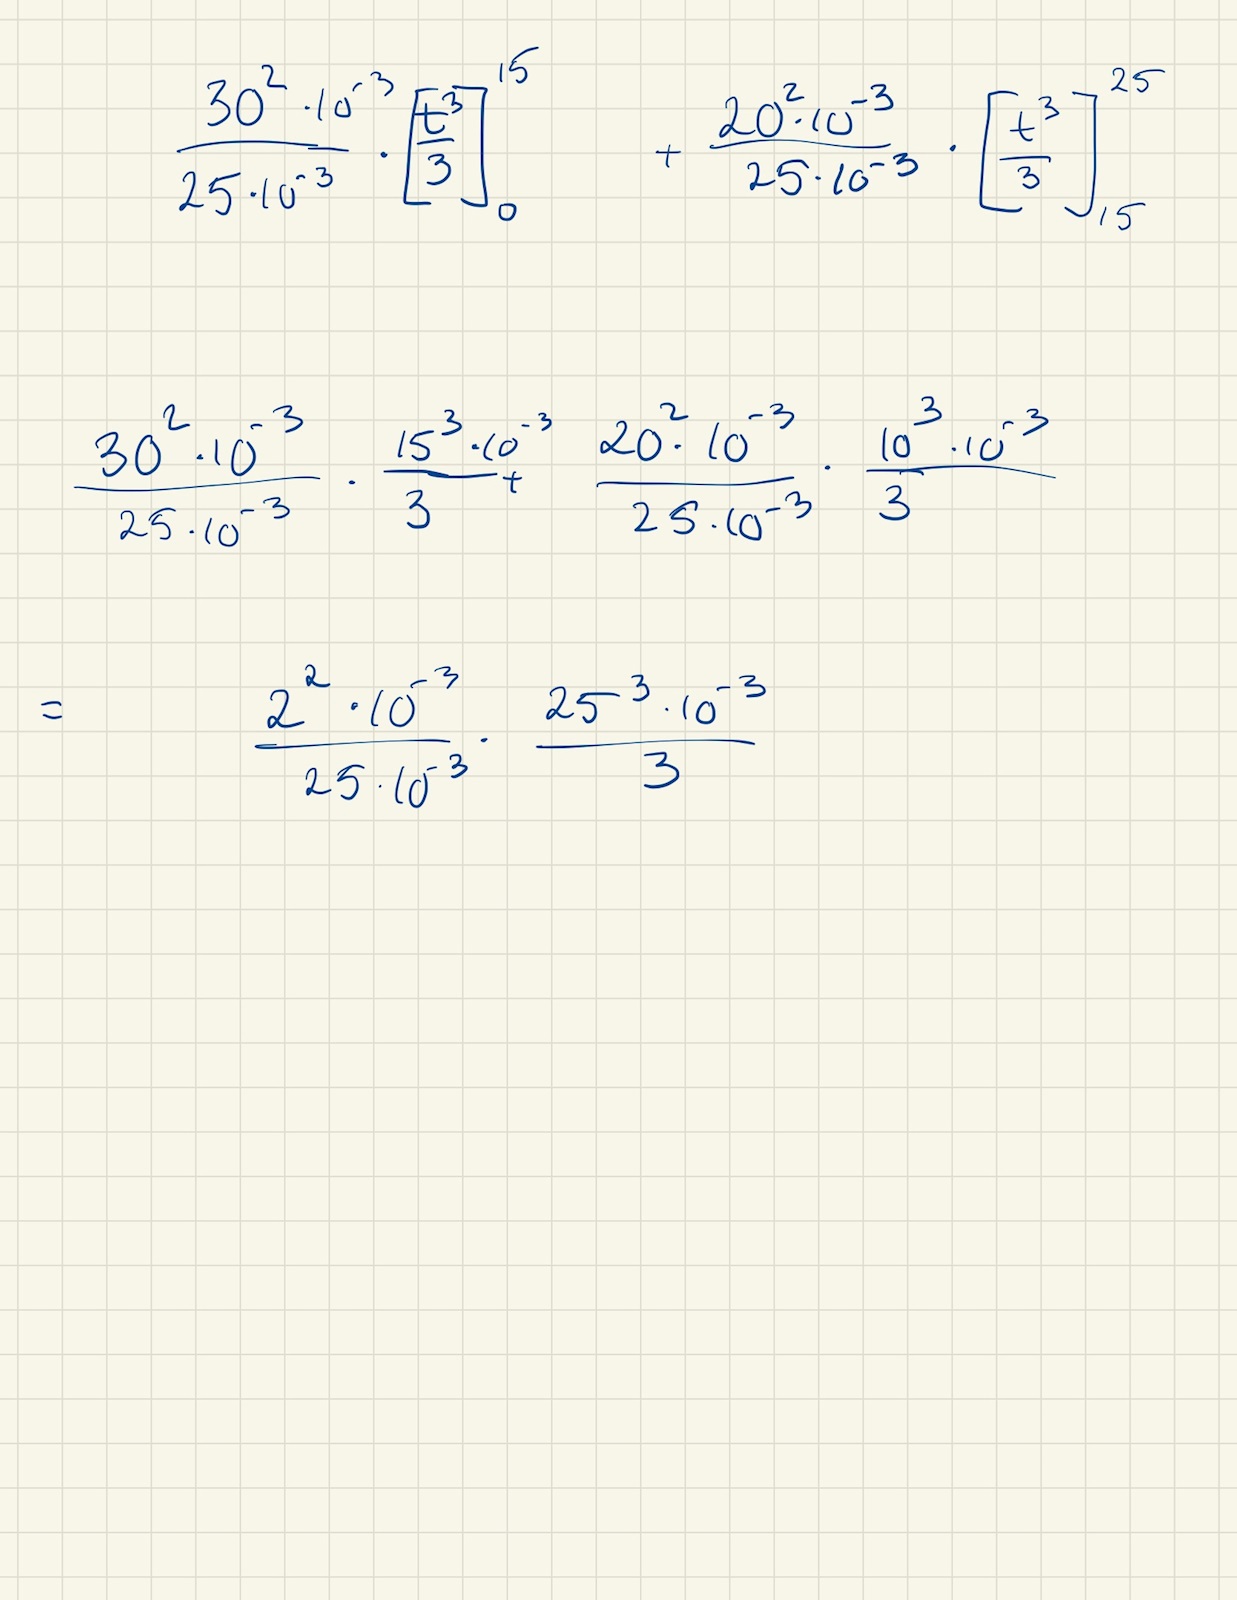 \frac{30^2 \cdot 10^{-3}}{25 \cdot 10^{-3}} \cdot \left[\frac{t^3}{3}\right]_0^{15} + \frac{20^2 \cdot 10^{-3}}{25 \cdot 10^{-3}} \cdot \left[\frac{t^3}{3}\right]_{15}^{25}
\frac{30^2 \cdot 10^{-3}}{25 \cdot 10^{-3}} \cdot \frac{15^3 \cdot 10^{-3}}{3} + \frac{20^2 \cdot 10^{-3}}{25 \cdot 10^{-3}} \cdot \frac{10^3 \cdot 10^{-3}}{3}
= \frac{2^2 \cdot 10^{-3}}{25 \cdot 10^{-3}} \cdot \frac{25^3 \cdot 10^{-3}}{3}